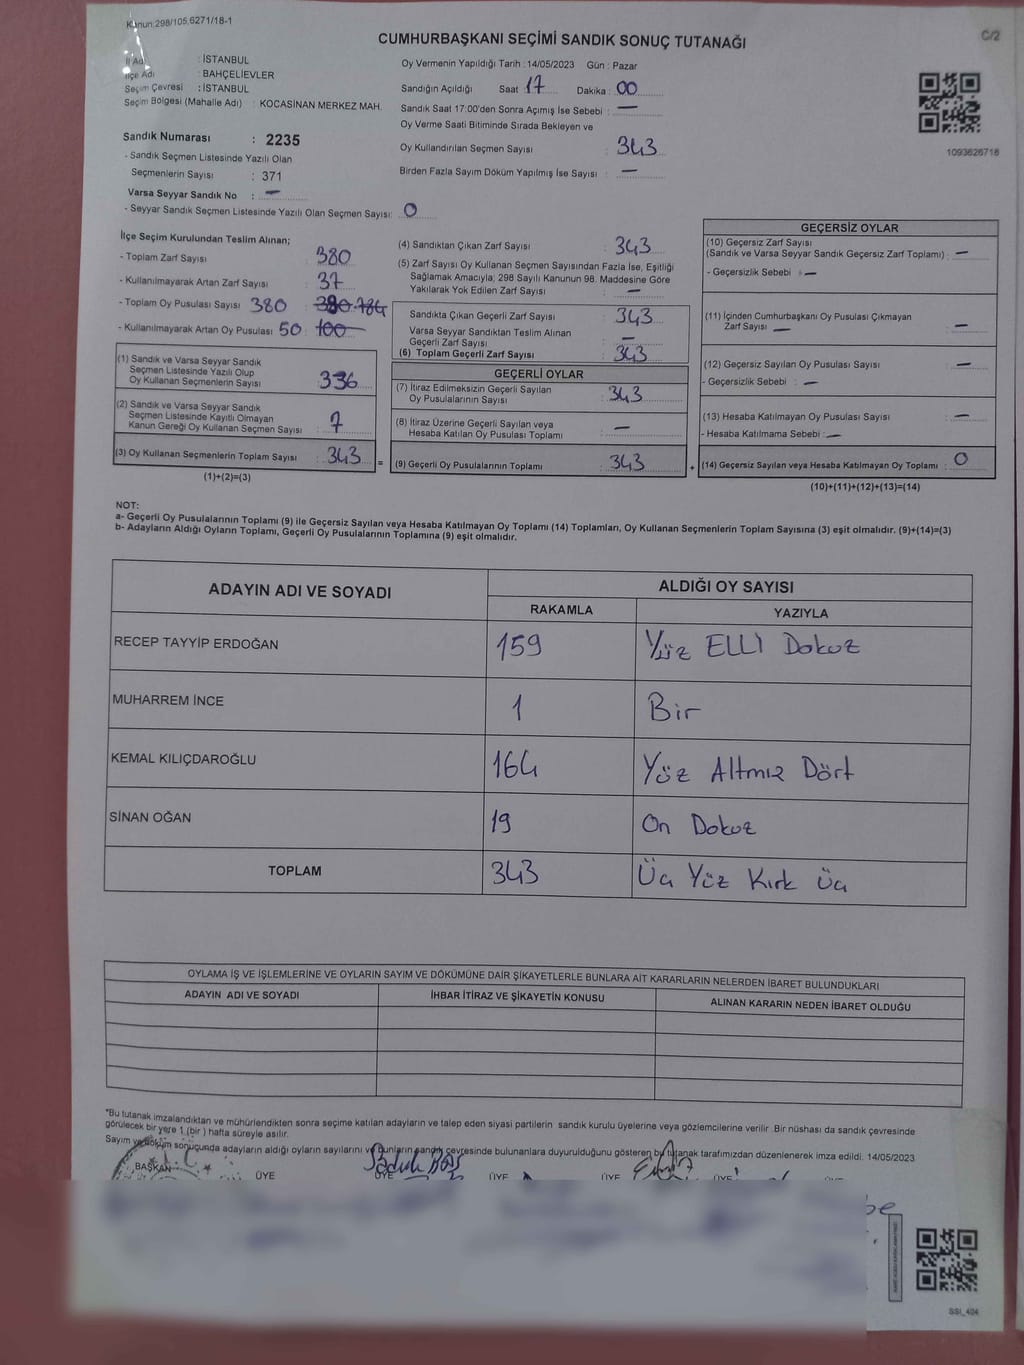 Kanun:298/105,6271/18-1
C/2
CUMHURBAŞKANI SEÇİMİ SANDIK SONUÇ TUTANAĞI
İl Adı : İSTANBUL
İlçe Adı : BAHÇELİEVLER
Seçim Çevresi : İSTANBUL
Seçim Bölgesi (Mahalle Adı) : KOCASİNAN MERKEZ MAH.
Sandık Numarası : 2235
- Sandık Seçmen Listesinde Yazılı Olan
Seçmenlerin Sayısı : 371
Varsa Seyyar Sandık No : —
- Seyyar Sandık Seçmen Listesinde Yazılı Olan Seçmen Sayısı: 0
Oy Vermenin Yapıldığı Tarih : 14/05/2023 Gün : Pazar
Sandığın Açıldığı Saat 17 Dakika : 00
Sandık Saat 17:00'den Sonra Açımış İse Sebebi : —
Oy Verme Saati Bitiminde Sırada Bekleyen ve
Oy Kullandırılan Seçmen Sayısı : 343
Birden Fazla Sayım Döküm Yapılmış İse Sayısı : —
1093626718
İlçe Seçim Kurulundan Teslim Alınan;
- Toplam Zarf Sayısı 380
- Kullanılmayarak Artan Zarf Sayısı : 37
- Toplam Oy Pusulası Sayısı 380 380 784
- Kullanılmayarak Artan Oy Pusulası 50 100
(1) Sandık ve Varsa Seyyar Sandık
Seçmen Listesinde Yazılı Olup
Oy Kullanan Seçmenlerin Sayısı : 336
(2) Sandık ve Varsa Seyyar Sandık
Seçmen Listesinde Kayıtlı Olmayan
Kanun Gereği Oy Kullanan Seçmen Sayısı : 7
(3) Oy Kullanan Seçmenlerin Toplam Sayısı : 343
(1)+(2)=(3)
(4) Sandıktan Çıkan Zarf Sayısı : 343
(5) Zarf Sayısı Oy Kullanan Seçmen Sayısından Fazla İse, Eşitliği
Sağlamak Amacıyla; 298 Sayılı Kanunun 98. Maddesine Göre
Yakılarak Yok Edilen Zarf Sayısı : —
Sandıkta Çıkan Geçerli Zarf Sayısı : 343
Varsa Seyyar Sandıktan Teslim Alınan
Geçerli Zarf Sayısı : —
(6) Toplam Geçerli Zarf Sayısı : 343
GEÇERLİ OYLAR
(7) İtiraz Edilmeksizin Geçerli Sayılan
Oy Pusulalarının Sayısı : 343
(8) İtiraz Üzerine Geçerli Sayılan veya
Hesaba Katılan Oy Pusulası Toplamı : —
= (9) Geçerli Oy Pusulalarının Toplamı : 343
GEÇERSİZ OYLAR
(10) Geçersiz Zarf Sayısı
(Sandık ve Varsa Seyyar Sandık Geçersiz Zarf Toplamı) : —
- Geçersizlik Sebebi : —
(11) İçinden Cumhurbaşkanı Oy Pusulası Çıkmayan
Zarf Sayısı : —
(12) Geçersiz Sayılan Oy Pusulası Sayısı : —
- Geçersizlik Sebebi : —
(13) Hesaba Katılmayan Oy Pusulası Sayısı : —
- Hesaba Katılmama Sebebi : —
+ (14) Geçersiz Sayılan veya Hesaba Katılmayan Oy Toplamı : 0
(10)+(11)+(12)+(13)=(14)
NOT:
a- Geçerli Oy Pusulalarının Toplamı (9) ile Geçersiz Sayılan veya Hesaba Katılmayan Oy Toplamı (14) Toplamları, Oy Kullanan Seçmenlerin Toplam Sayısına (3) eşit olmalıdır. (9)+(14)=(3)
b- Adayların Aldığı Oyların Toplamı, Geçerli Oy Pusulalarının Toplamına (9) eşit olmalıdır.
ADAYIN ADI VE SOYADI ALDIĞI OY SAYISI
RAKAMLA YAZIYLA
RECEP TAYYİP ERDOĞAN 159 Yüz ELLİ Dokuz
MUHARREM İNCE 1 Bir
KEMAL KILIÇDAROĞLU 164 Yüz Altmız Dört
SİNAN OĞAN 19 On Dokuz
TOPLAM 343 Üç Yüz Kırk Üç
OYLAMA İŞ VE İŞLEMLERİNE VE OYLARIN SAYIM VE DÖKÜMÜNE DAİR ŞİKAYETLERLE BUNLARA AİT KARARLARIN NELERDEN İBARET BULUNDUKLARI
ADAYIN ADI VE SOYADI İHBAR İTİRAZ VE ŞİKAYETİN KONUSU ALINAN KARARIN NEDEN İBARET OLDUĞU
"Bu tutanak imzalandıktan ve mühürlendikten sonra seçime katılan adayların ve talep eden siyasi partilerin sandık kurulu üyelerine veya gözlemcilerine verilir .Bir nüshası da sandık çevresinde
görülecek bir yere 1 (bir ) hafta süreyle asılır.
Sayım ve döküm sonuçunda adayların aldığı oyların sayılarını ve bunların sandık çevresinde bulunanlara duyurulduğunu gösteren bu tutanak tarafımızdan düzenlenerek imza edildi. 14/05/2023
BAŞKAN ÜYE ÜYE ÜYE ÜYE
SSI_404